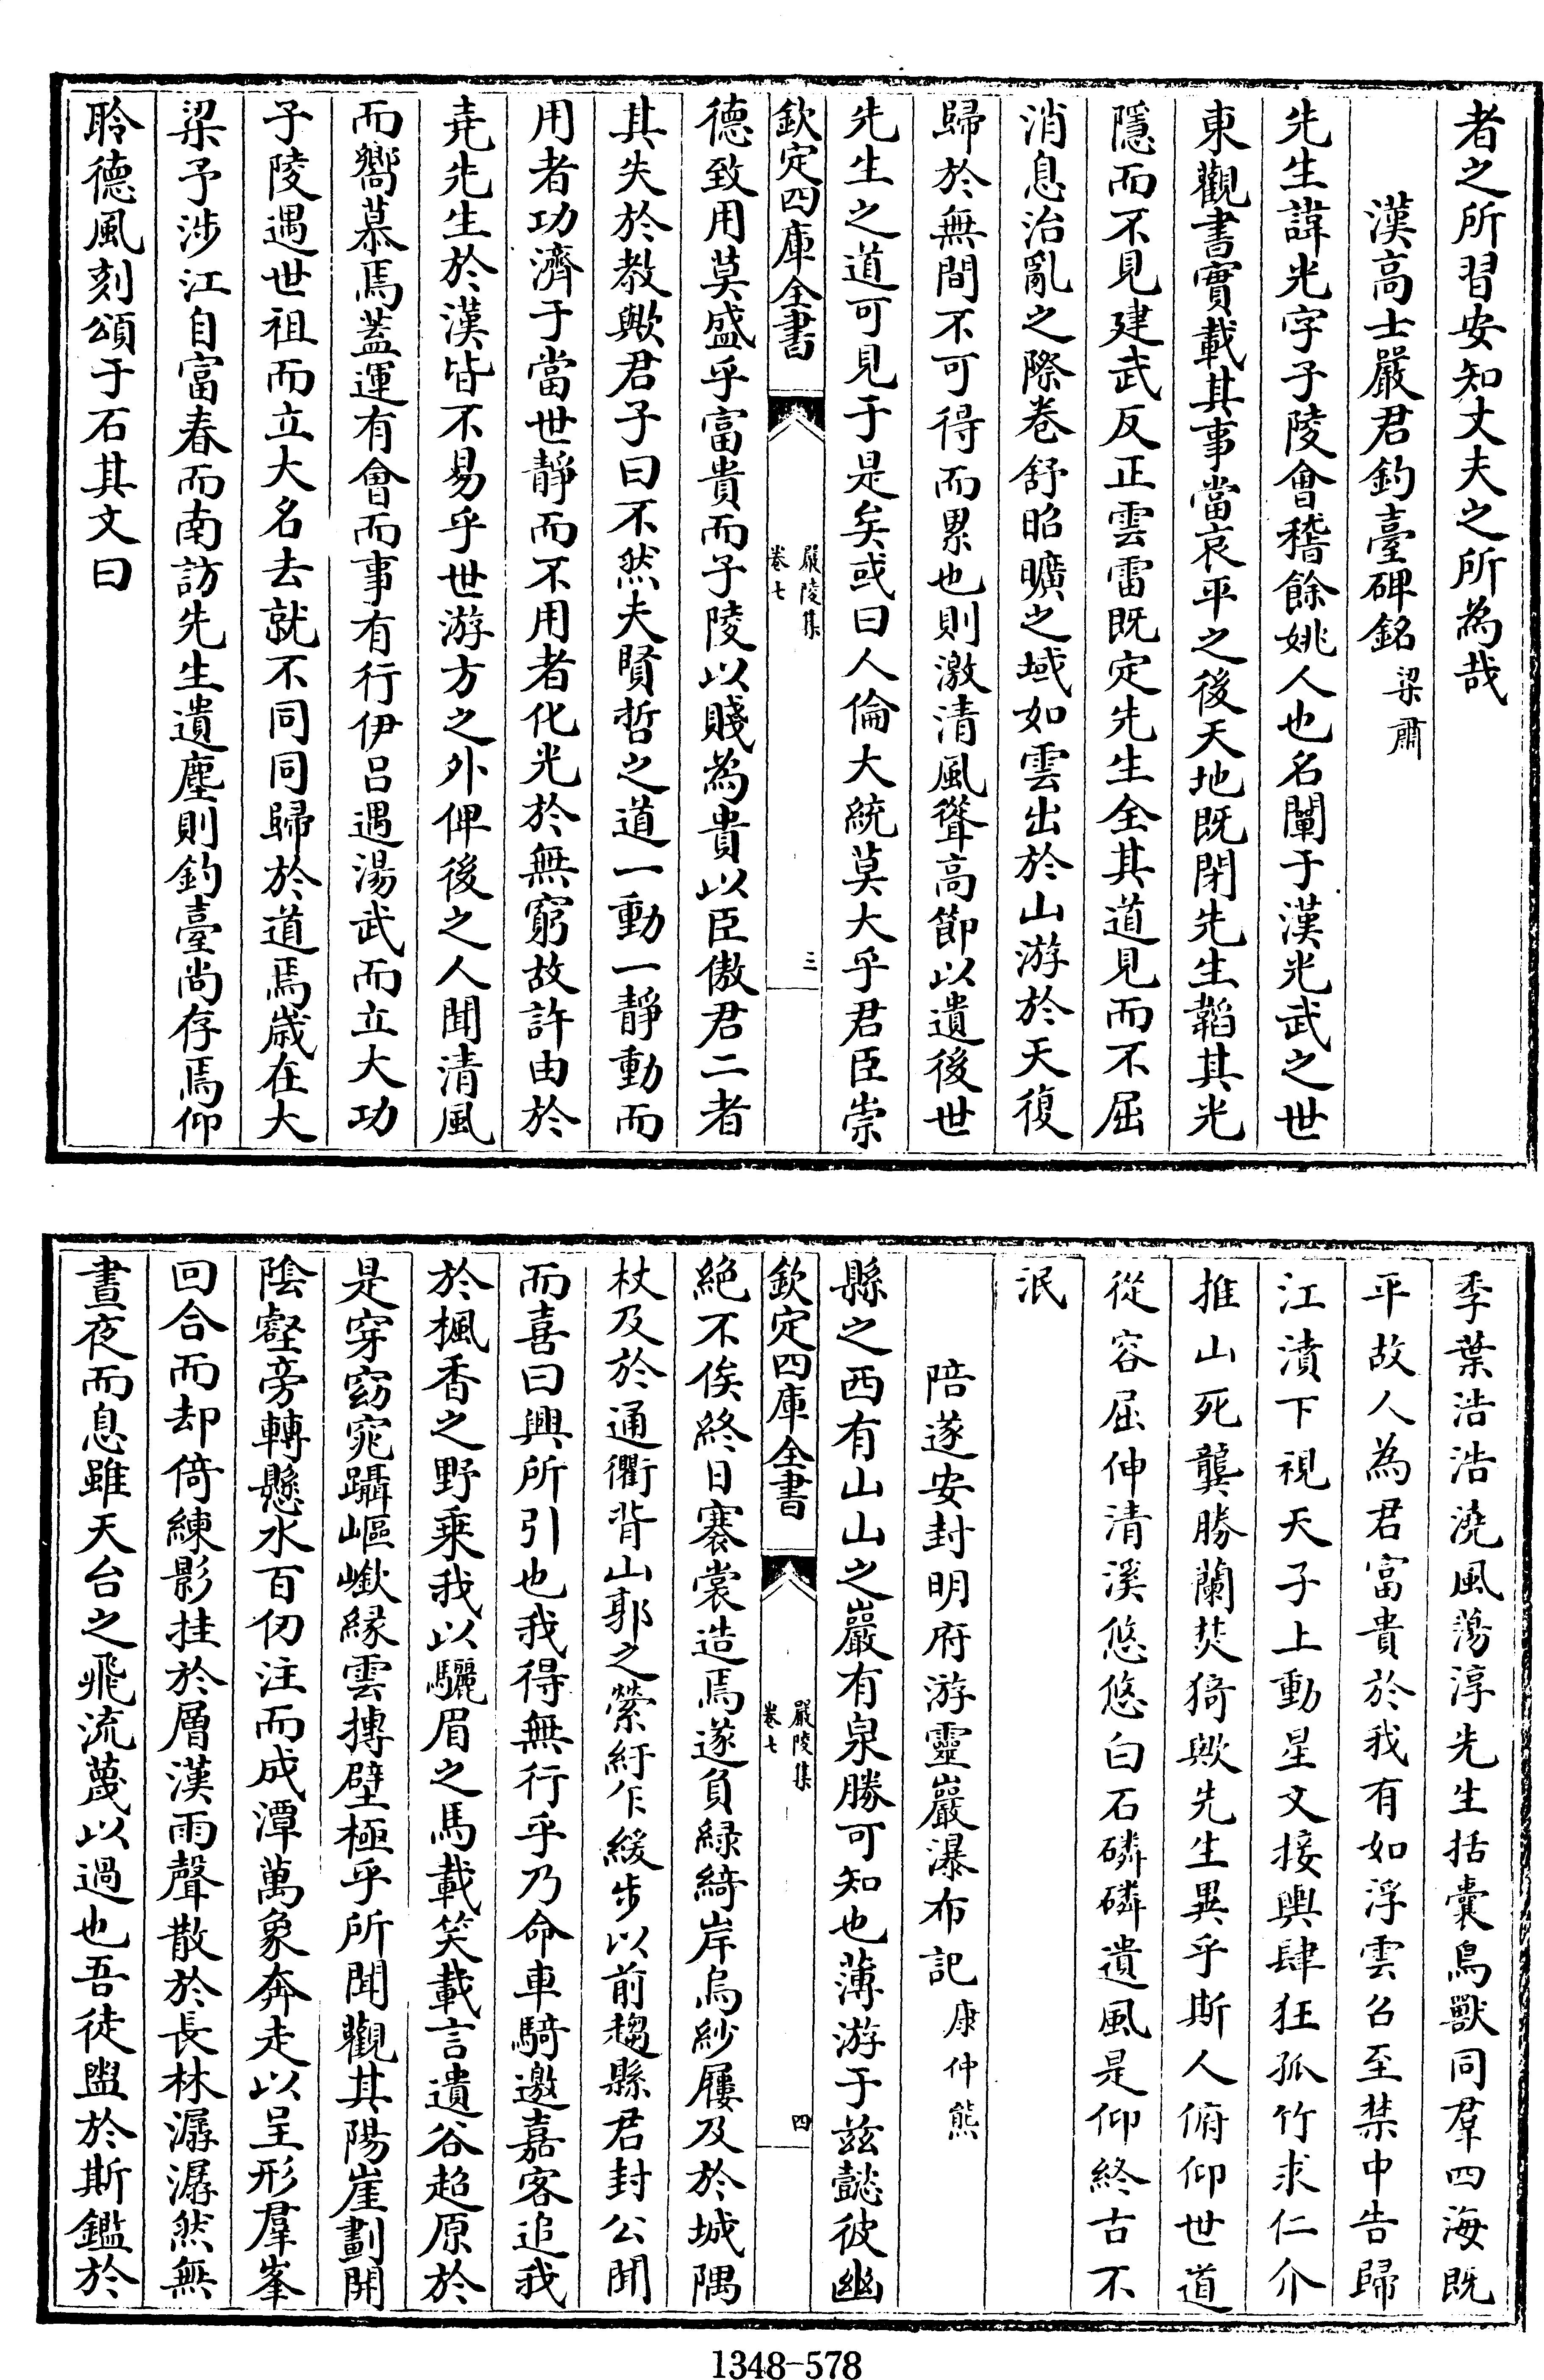 者之所習安知丈夫之所為哉
漢高士嚴君釣臺碑銘梁肅
先生諱光字子陵會稽餘姚人也名闡于漢光武之世
東觀書實載其事當哀平之後天地既閉先生韜其光
隱而不見建武反正雲雷既定先生全其道見而不屈
消息治亂之際卷舒昭曠之域如雲出於山游於天復
歸於無間不可得而累也則激清風聳高節以遺後世
先生之道可見于是矣或曰人倫大統莫大乎君臣崇
欽定四庫全書
嚴陵集
卷七
三
德致用莫盛乎富貴而子陵以賤為貴以臣傲君二者
其失於教歟君子曰不然夫賢哲之道一動一靜動而
用者功濟于當世靜而不用者化光於無窮故許由於
堯先生於漢皆不易乎世游方之外俾後之人聞清風
而嚮慕焉蓋運有會而事有行伊呂遇湯武而立大功
子陵遇世祖而立大名去就不同同歸於道焉歲在大
梁予涉江自富春而南訪先生遺塵則釣臺尚存焉仰
聆德風刻頌于石其文曰
季葉浩浩澆風蕩淳先生括囊鳥獸同羣四海既
平故人為君富貴於我有如浮雲召至禁中告歸
江濆下視天子上動星文接輿肆狂孤竹求仁介
推山死龔勝蘭焚猗歟先生異乎斯人俯仰世道
從容屈伸清溪悠悠白石磷磷遺風是仰終古不
泯
陪遂安封明府游靈巖瀑布記康仲熊
縣之西有山山之巖有泉勝可知也薄游于茲懿彼幽
欽定四庫全書
嚴陵集
卷七
四
絕不俟終日褰裳造焉遂負綠綺岸烏紗屨及於城隅
杖及於通衢背山郭之縈紆乍緩步以前趨縣君封公聞
而喜曰興所引也我得無行乎乃命車騎邀嘉客追我
於楓香之野乗我以驪眉之馬載笑載言遺谷超原於
是穿窈窕躡嶇嶔緣雲摶壁極乎所聞觀其陽崖劃開
陰壑旁轉懸水百仞注而成潭萬象奔走以呈形羣峯
回合而却倚練影挂於層漢雨聲散於長林潺潺然無
晝夜而息雖天台之飛流蔑以過也吾徒盥於斯鑑於
1348-578